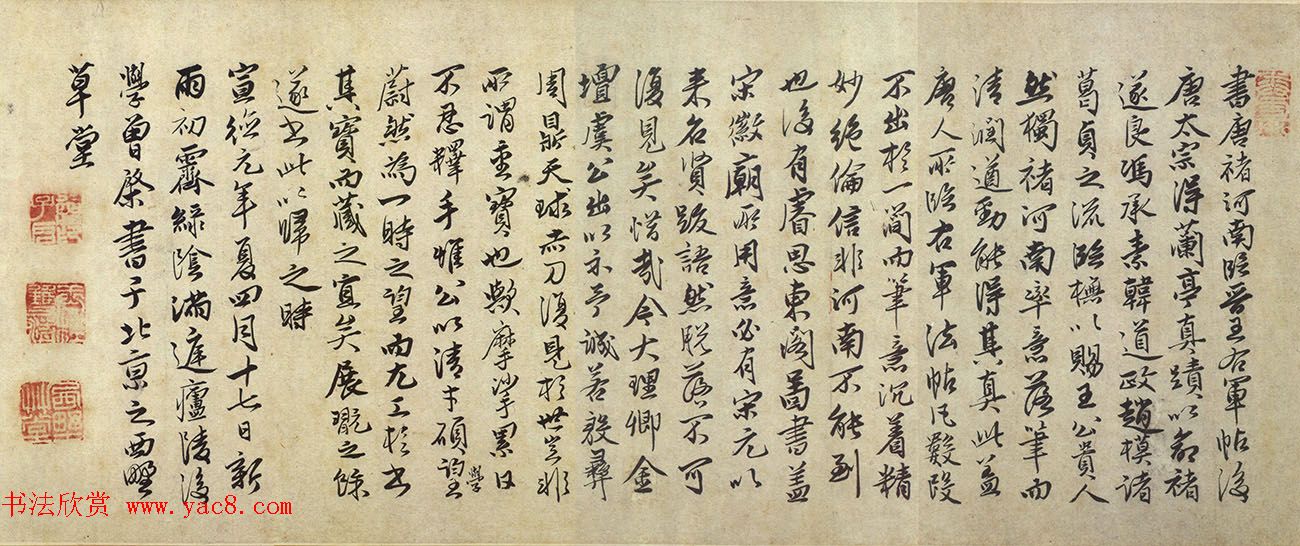 書唐褚河南臨晉王右軍帖後
唐太宗得蘭亭真蹟以命褚
遂良馮承素韓道政趙模諸
葛貞之流臨橅以賜王公貴人
然獨褚河南率意落筆而
清潤遒勁能得其真此蓋
唐人所臨右軍法帖凡數段
不出於一簡而筆意沉着精
妙絶倫信非河南不能到
也後有睿思東閣圖書蓋
宋徽廟所用意必有宋元以
来名賢跋語然脫落不可
復見矣惜哉今大理卿金
壇虞公出以示予誠若殷彝
周鼎天球赤刀復見於世豈非
所謂重寶也歟摩挲累日
不忍釋手惟公以清才碩學望
蔚然為一時之望而尤工於書
其寶而藏之宜矣展翫之餘
遂書此以歸之時
宣德元年夏四月十七日新
雨初霽緑陰滿庭廬陵後
學曾棨書于北京之西墅
草堂
书法欣赏 www.yac8.com